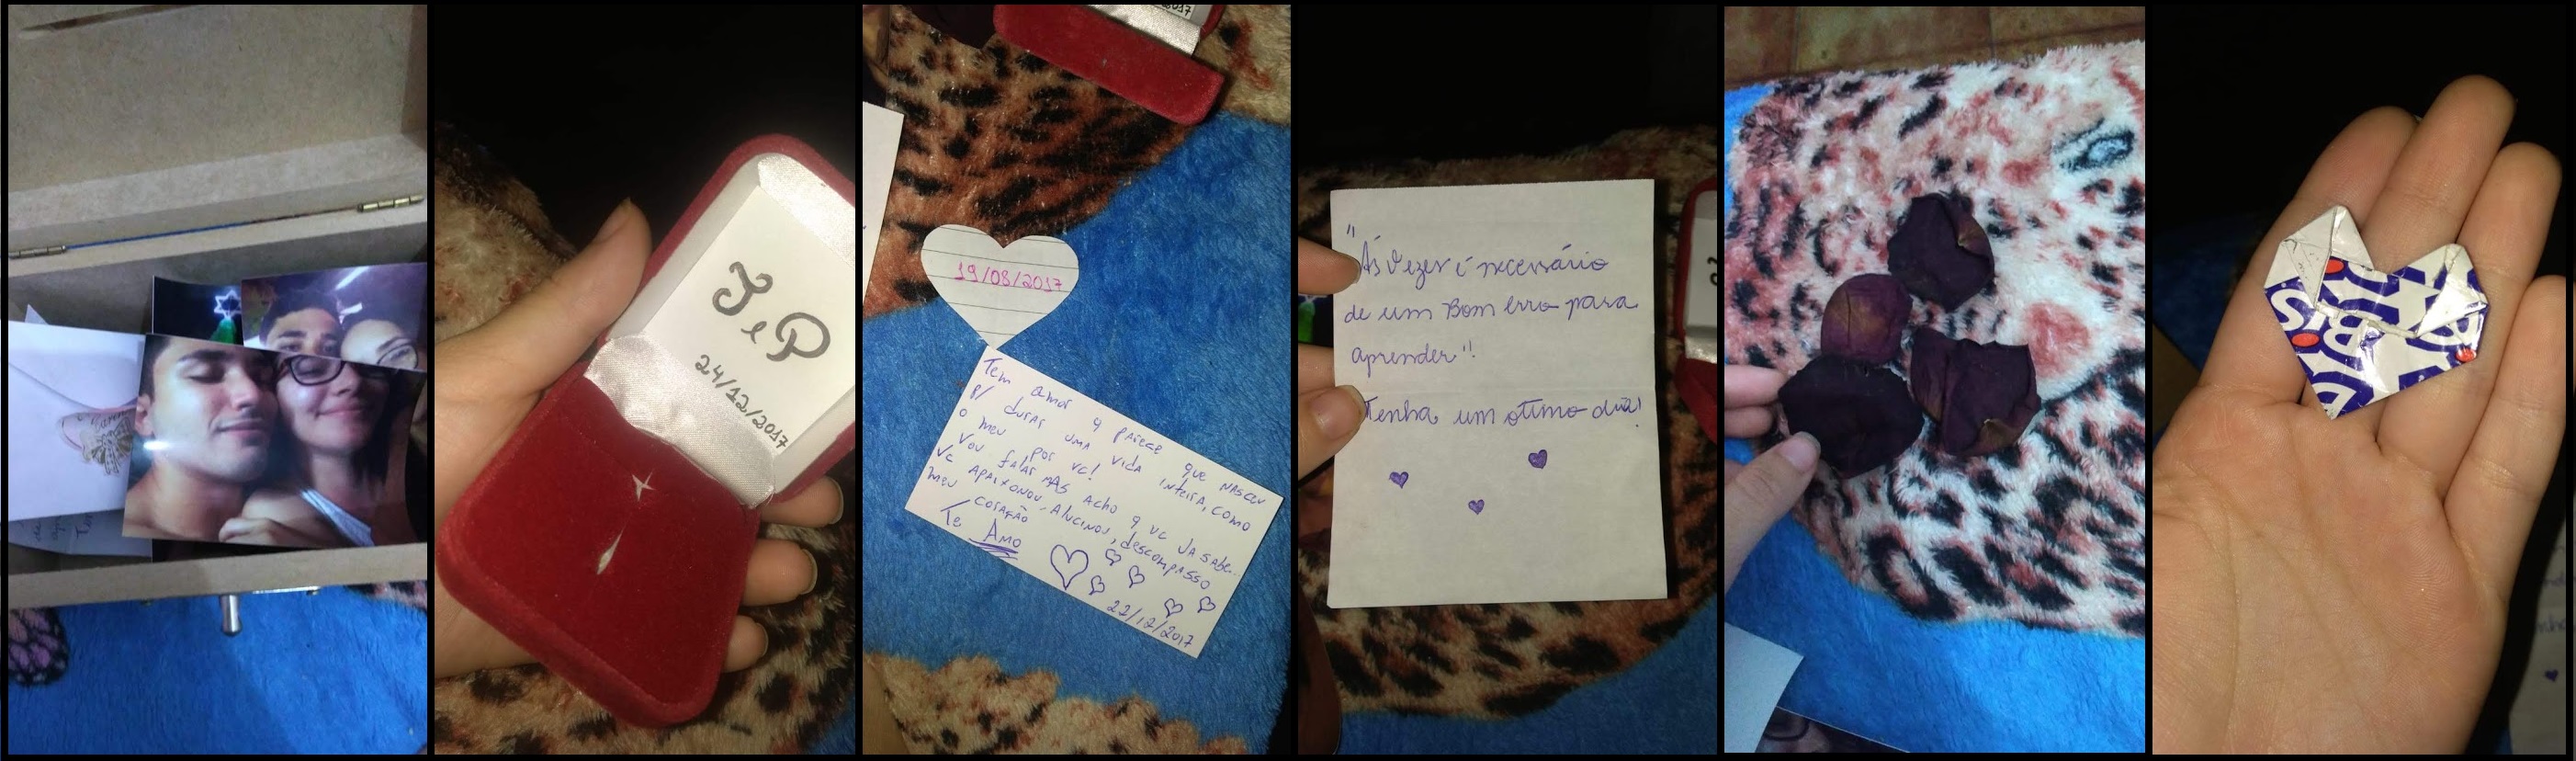 J e P
24/12/2017
2017
19/08/2017
Tem amor q parece que nasceu
p/ durar uma vida inteira, como
o meu por vc!
Vou falar mas acho q vc já sabe...
Vc apaixonou, alucinou, descompasso
meu coração
Te Amo
22/12/2017
"
Ás vezes é necessário
de um Bom erro para
aprender"!
Tenha um otimo dia!
Bis